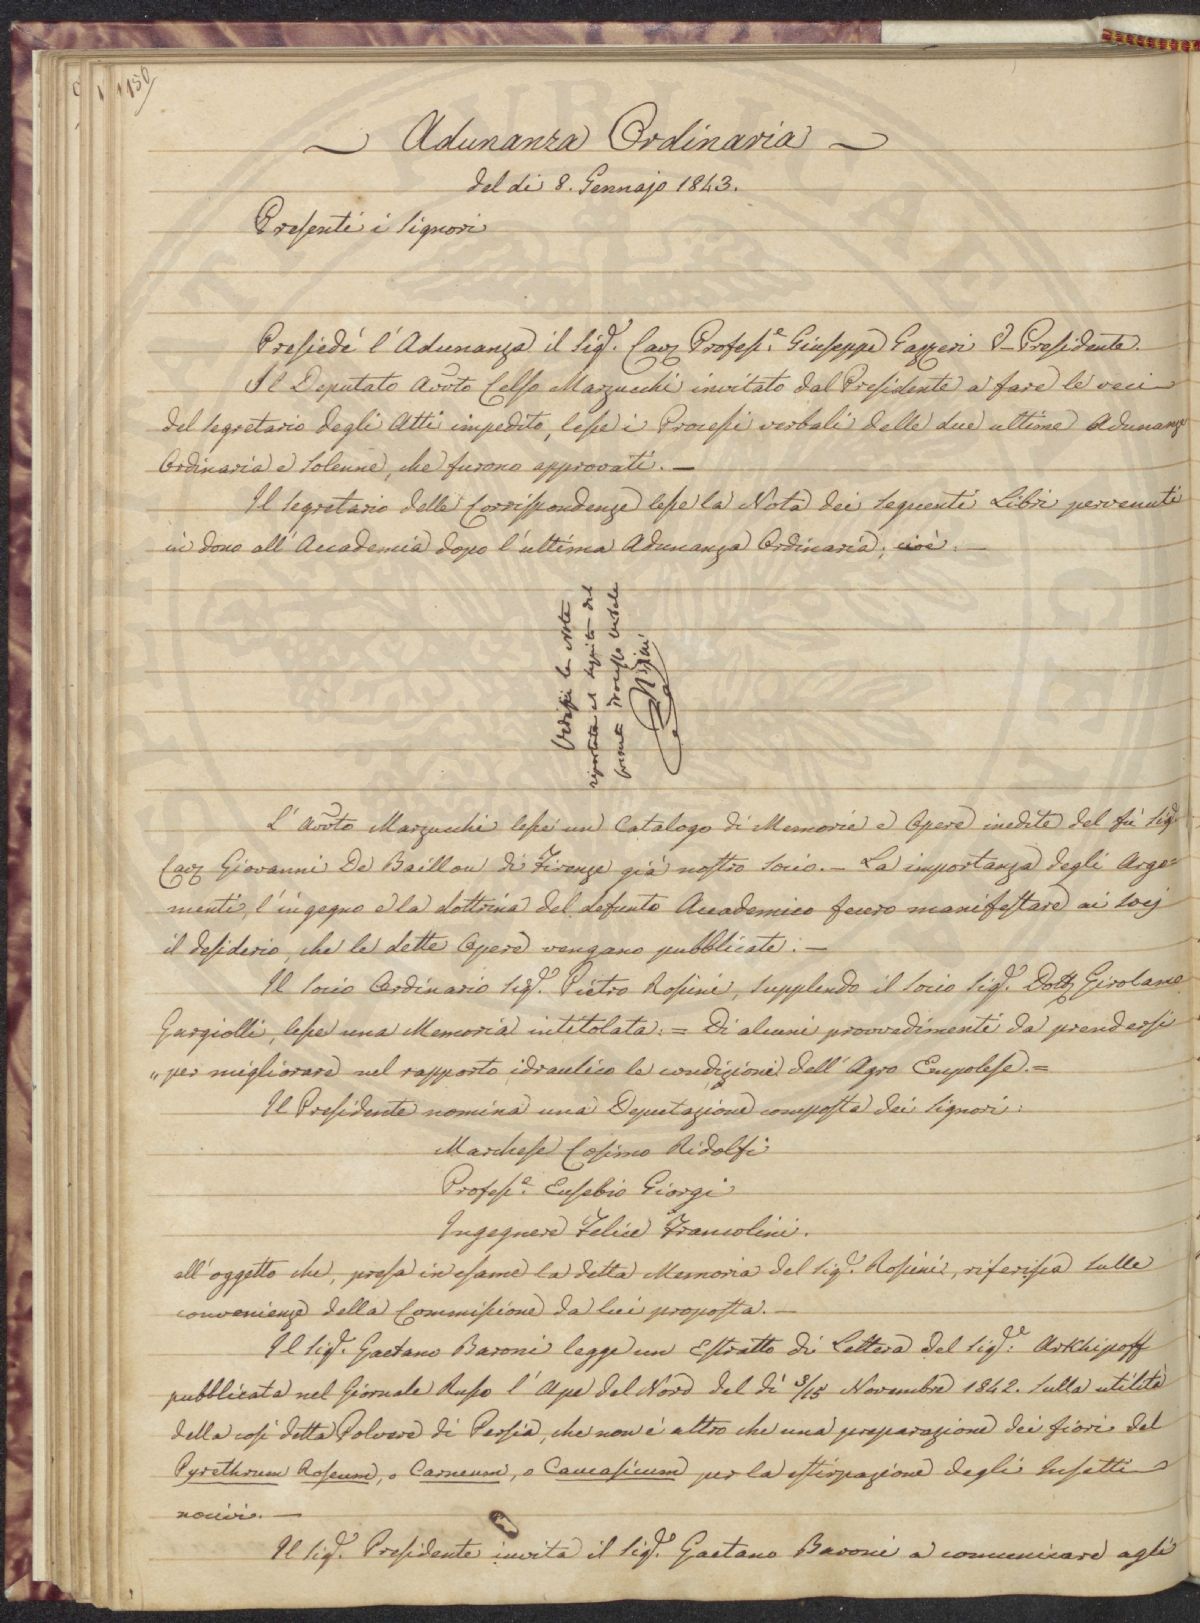 150
Adunanza Ordinaria
del di 8. Gennajo 1843.
Presenti i Signori
Presiedé l'Adunanza il Sigr. Cavr Profesre Giuseppe Gazzeri V. Presidente.
Il Deputato Avvto Celso Marzucchi invitato dal Presidente a fare le veci
del Segretario degli Atti impedito, lesse i Processi verbali delle due ultime Adunanze
Ordinaria e Solenne, che furono approvati. —
Il Segretario delle Corrispondenze lesse la Nota dei seguenti Libri pervenuti
in dono all'Accademia dopo l'ultima Adunanza Ordinaria; cioè. —
Vedasi la nota
riportata al seguito del
presente processo verbale
L'Avvto Marzucchi lesse un Catalogo di Memorie e Opere inedite del fù Sigr
Cavr Giovanni De Baillou di Firenze già nostro Socio. — La importanza degli Argo=
menti, l'ingegno e la dottrina del defunto Accademico fecero manifestare ai Socj
il desiderio, che le dette Opere vengano pubblicate: —
Il Socio Ordinario Sigr. Pietro Rosini, supplendo il Socio Sigr. Dottr Girolamo
Gargiolli, lesse una Memoria intitolata: = Di alcuni provvedimenti da prendersi
" per migliorare nel rapporto idraulico le condizioni dell'Agro Empolese. =
Il Presidente nomina una Deputazione composta dei Signori:
Marchese Cosimo Ridolfi
Profesre. Eusebio Giorgi
Ingegnere Felice Francolini.
all'oggetto che, presa in esame la detta Memoria del Sigr. Rosini, riferissa sulle
convenienze della Commissione da lui proposta. —
Il Sigr. Gaetano Baroni legge un Estratto di Lettera del Sigre. Arkhipoff
pubblicata nel Giornale Russo l'Ape del Nord del dì 3/15 Novembre 1842. sulla utilità
della così detta Polvere di Persia, che non è altro che una preparazione dei fiori del
Pyrethrum Roseum, o Carneum, o Caucasicum per la estirpazione degli Insetti
nocivi. —
Il Sigr. Presidente invita il Sigr. Gaetano Baroni a comunicare agli